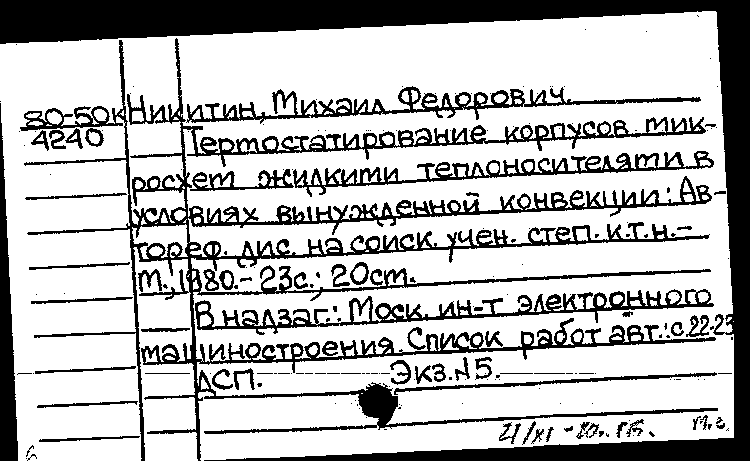 80-50к Никитин, Михаил Федорович.
4240 Термостатирование корпусов мик-
росхем жидкими теплоносителями в
условиях вынужденной конвекции: Ав-
тореф. дис. на соиск. учен. степ. к.т.н.-
М., 1980.- 23с.; 20см.
В надзаг.: Моск. ин-т электронного
машиностроения. Список работ авт.: с.22-23
ДСП. Экз.№5.
21/XI